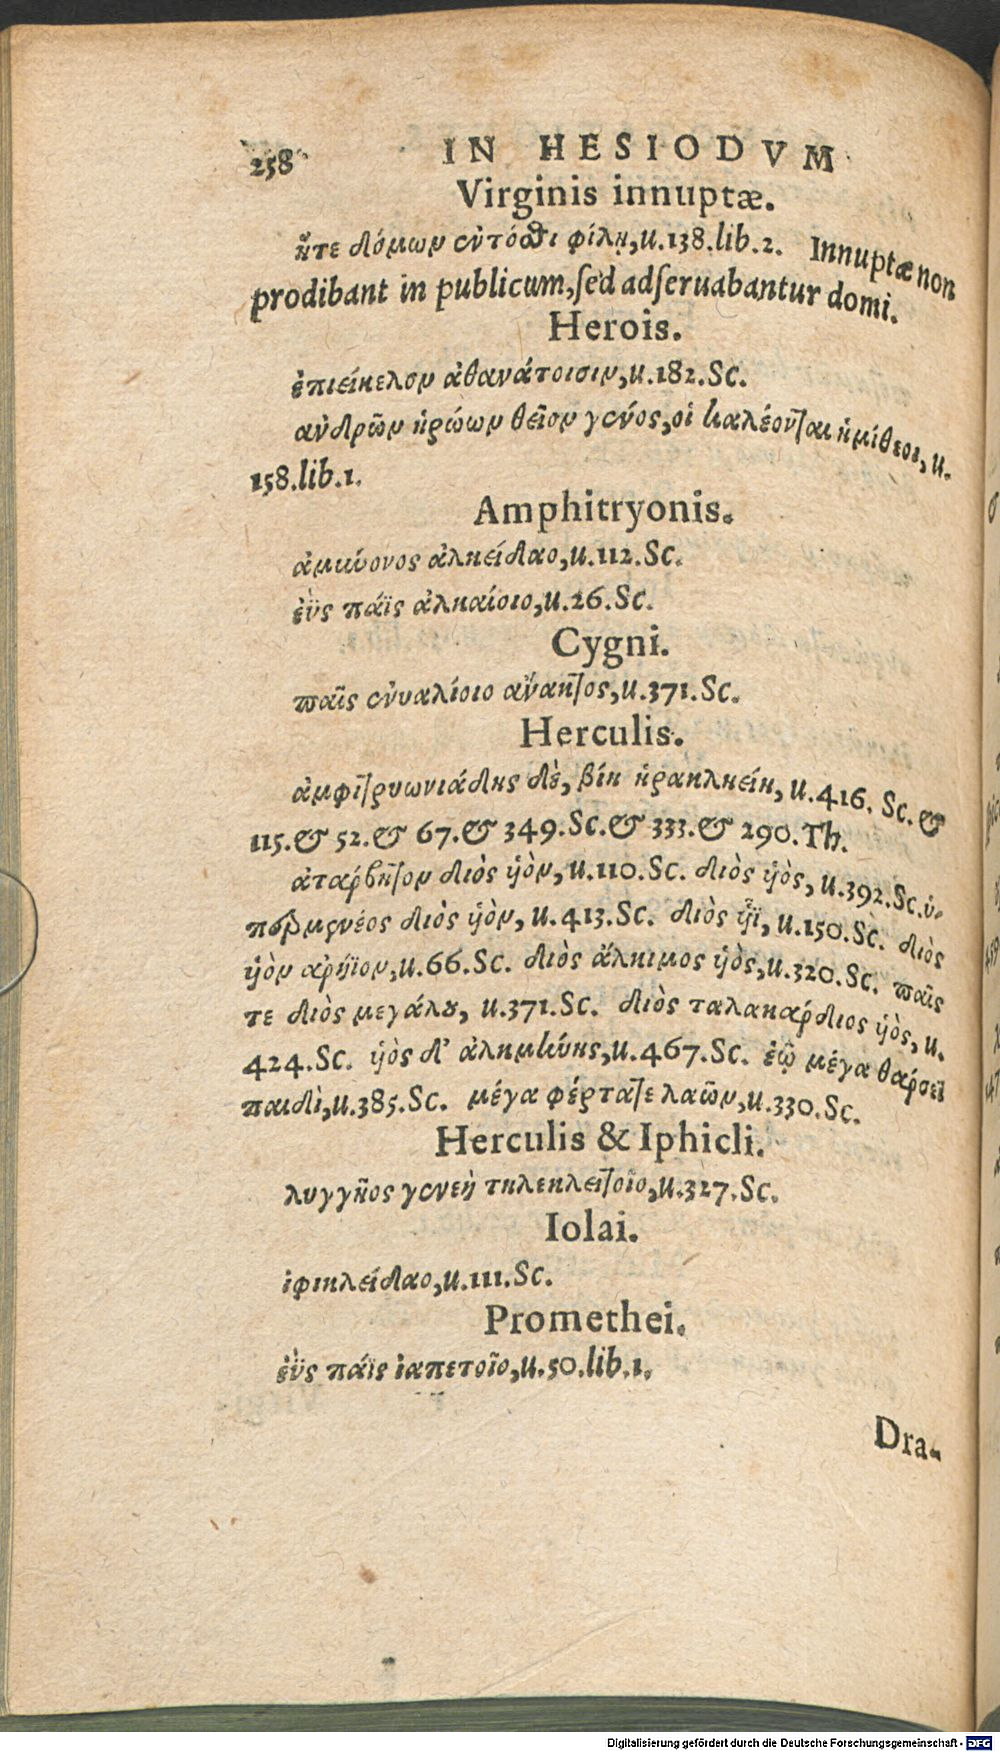 258 IN HESIODVM
Virginis innuptæ.
ἥτε δόμων ἐντόσθι φίλῃ, u.138.lib.2. Innuptæ non
prodibant in publicum, ſed adſeruabantur domi.
Herois.
ἐπιείκελον ἀθανάτοισιν, u.182.Sc.
ἀνδρῶν ἡρώων θεῖον γένος, οἱ καλέονται ἡμίθεοι, u.
158.lib.1.
Amphitryonis.
ἀμύμονος ἀλκείδαο, u.112.Sc.
ἐῢς πάϊς ἀλκαίοιο, u.26.Sc.
Cygni.
παῖς ἐνυαλίοιο ἄνακτος, u.371.Sc.
Herculis.
ἀμφιτρυωνιάδης δὲ, βίη ἡρακληείη, u.416. Sc. &
115.& 52.& 67.& 349.Sc.& 333.& 290.Th.
ἀταρβητον διὸς ὑὸν, u.110.Sc. διὸς ὑὸς, u.392.Sc.ὑ-
περμενέος διὸς ὑὸν, u.413.Sc. διὸς ὑῖ, u.150.Sc. διὸς
ὑὸν ἀρήϊον, u.66.Sc. διὸς ἄλκιμος ὑὸς, u.320.Sc. παῖς
τε διὸς μεγάλου, u.371.Sc. διὸς ταλακάρδιος ὑὸς, u.
424.Sc. ὑὸς δ' ἀλκμήνης, u.467.Sc. ἑῷ μέγα θαρσεῖ
παιδὶ, u.385.Sc. μέγα φέρτατε λαῶν, u.330.Sc.
Herculis & Iphicli.
λυγγῆος γενεὴ τηλεκλειτοῖο, u.327.Sc.
Iolai.
ἰφικλείδαο, u.111.Sc.
Promethei.
ἐῢς πάϊς ἰαπετοῖο, u.50.lib.1.
Dra-
Digitalisierung gefördert durch die Deutsche Forschungsgemeinschaft - DFG